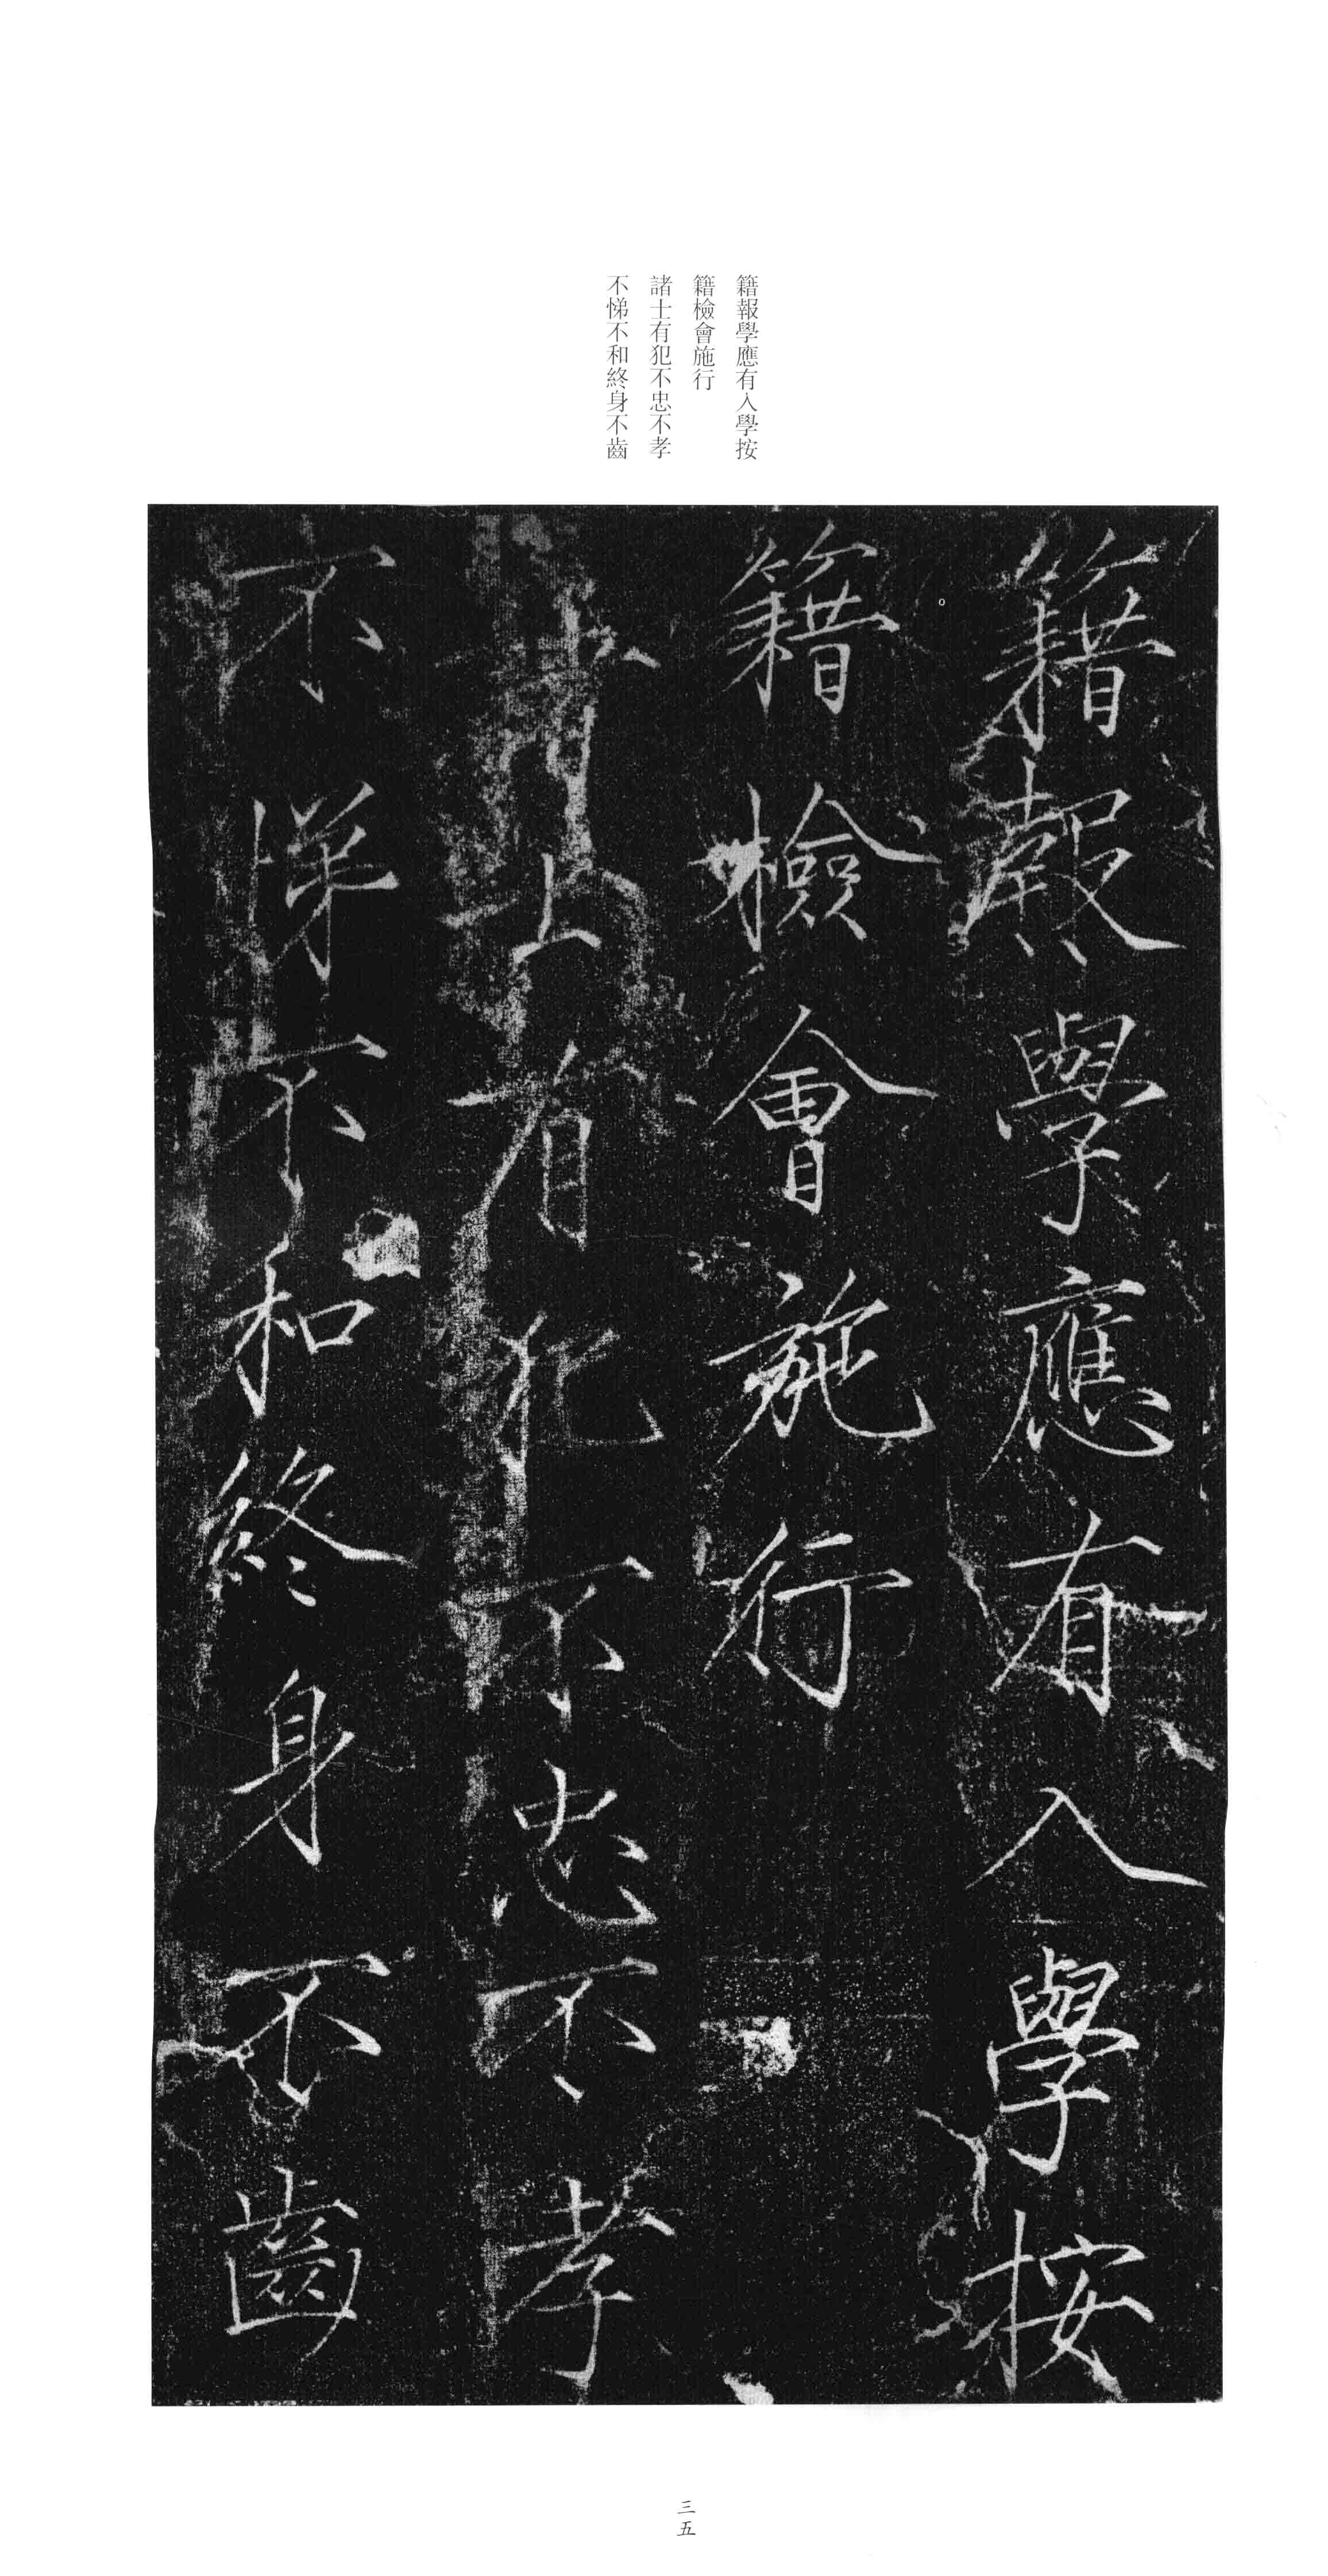 籍報學應有入學按
籍檢會施行
諸士有犯不忠不孝
不悌不和終身不齒
籍報學應有入學按
籍檢會施行
諸士有犯不忠不孝
不悌不和終身不齒
三五